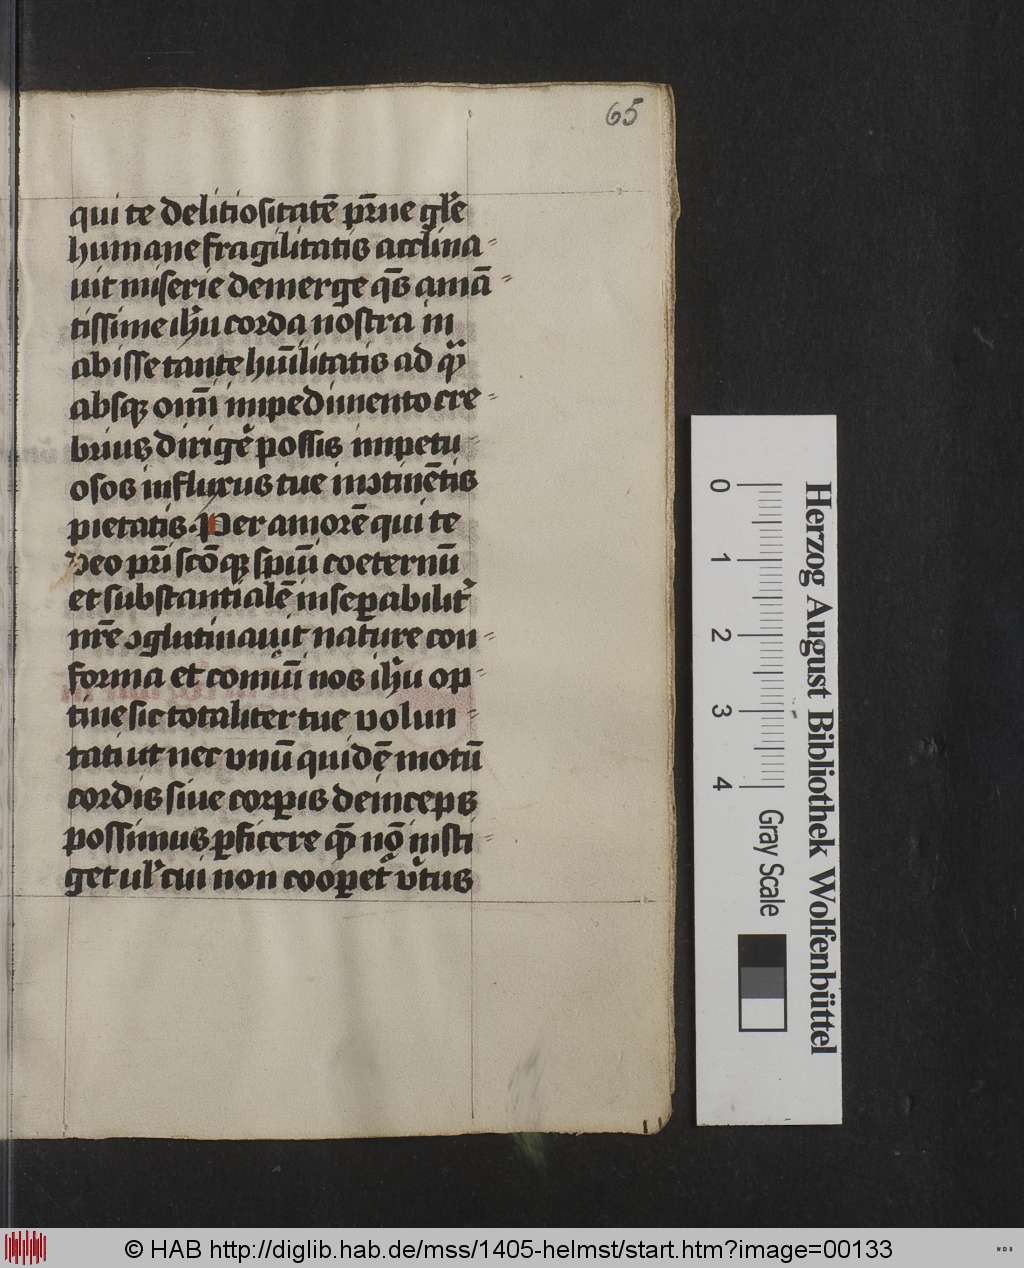 65
qui te delitiositatē pr̄ne gl'e
humane fragilitatis acclina⸗
uit miserie demerge q̄s amā⸗
tissime ih̄u corda nostra in
abisse tante hūilitatis ad qͣ
absqꝫ oīni impedimento cre⸗
brius dirigē possis impetu⸗
osos influxus tue inↄtinētis
pietatis. Per amorē qui te
Deo pr̄i scōqꝫ spiūi coeternū
et substantialē inseꝑabilit'
nr̄e ↄglutinauit nature con⸗
forma et comūi nos ih̄u op⸗
tine sic totaliter tue volun⸗
tati ut nec vnū quidē motū
cordis siue corꝑis deinceps
possimus ꝑficere qē nō insti⸗
get ul' cui non cooꝑet' v̄tus
Herzog August Bibliothek Wolfenbüttel
0 1 2 3 4
Gray Scale
© HAB http://diglib.hab.de/mss/1405-helmst/start.htm?image=00133